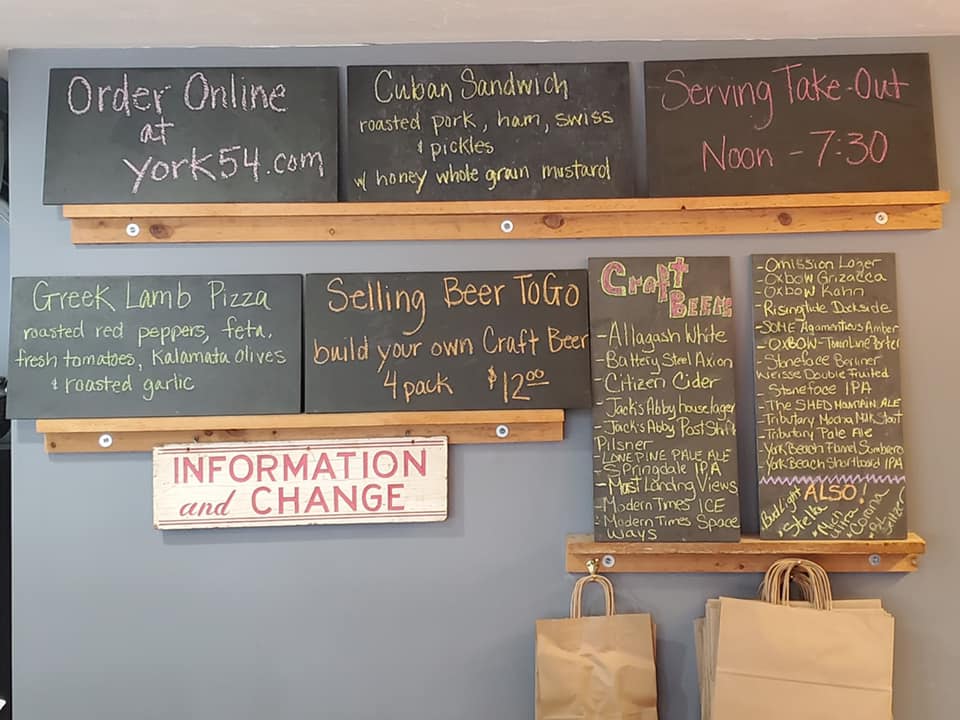 Order Online
at
york54.com
Cuban Sandwich
roasted pork, ham, swiss
& pickles
w/ honey whole grain mustard
Serving Take-Out
Noon - 7:30
Greek Lamb Pizza
roasted red peppers, feta,
fresh tomatoes, Kalamata olives
& roasted garlic
Selling Beer ToGo
build your own Craft Beer
4 pack $12.00
INFORMATION
and CHANGE
Craft
BEERS
- Allagash White
- Battery Steel Axion
- Citizen Cider
- Jack's Abby house lager
- Jack's Abby Post Shift
Pilsner
- LONE PINE PALE ALE
- Springdale IPA
- Mast Landing Views
- Modern Times ICE
- Modern Times Space
Ways
- Omission Lager
- Oxbow Grizacca
- Oxbow
- Rising Tide Dockside
- SOME Agamenticus Amber
- OXBOW - Town Line Porter
- Stoneface Berliner
Weisse Double Fruited
- Stoneface IPA
- The SHED MOUNTAIN ALE
- Tributary Mocha Milk Stout
- Tributary Pale Ale
- York Beach Sombrero
- York Beach Shortboard IPA
ALSO!
Bud Light
* Stella
* Mich
Ultra
* Corona
Seltzer